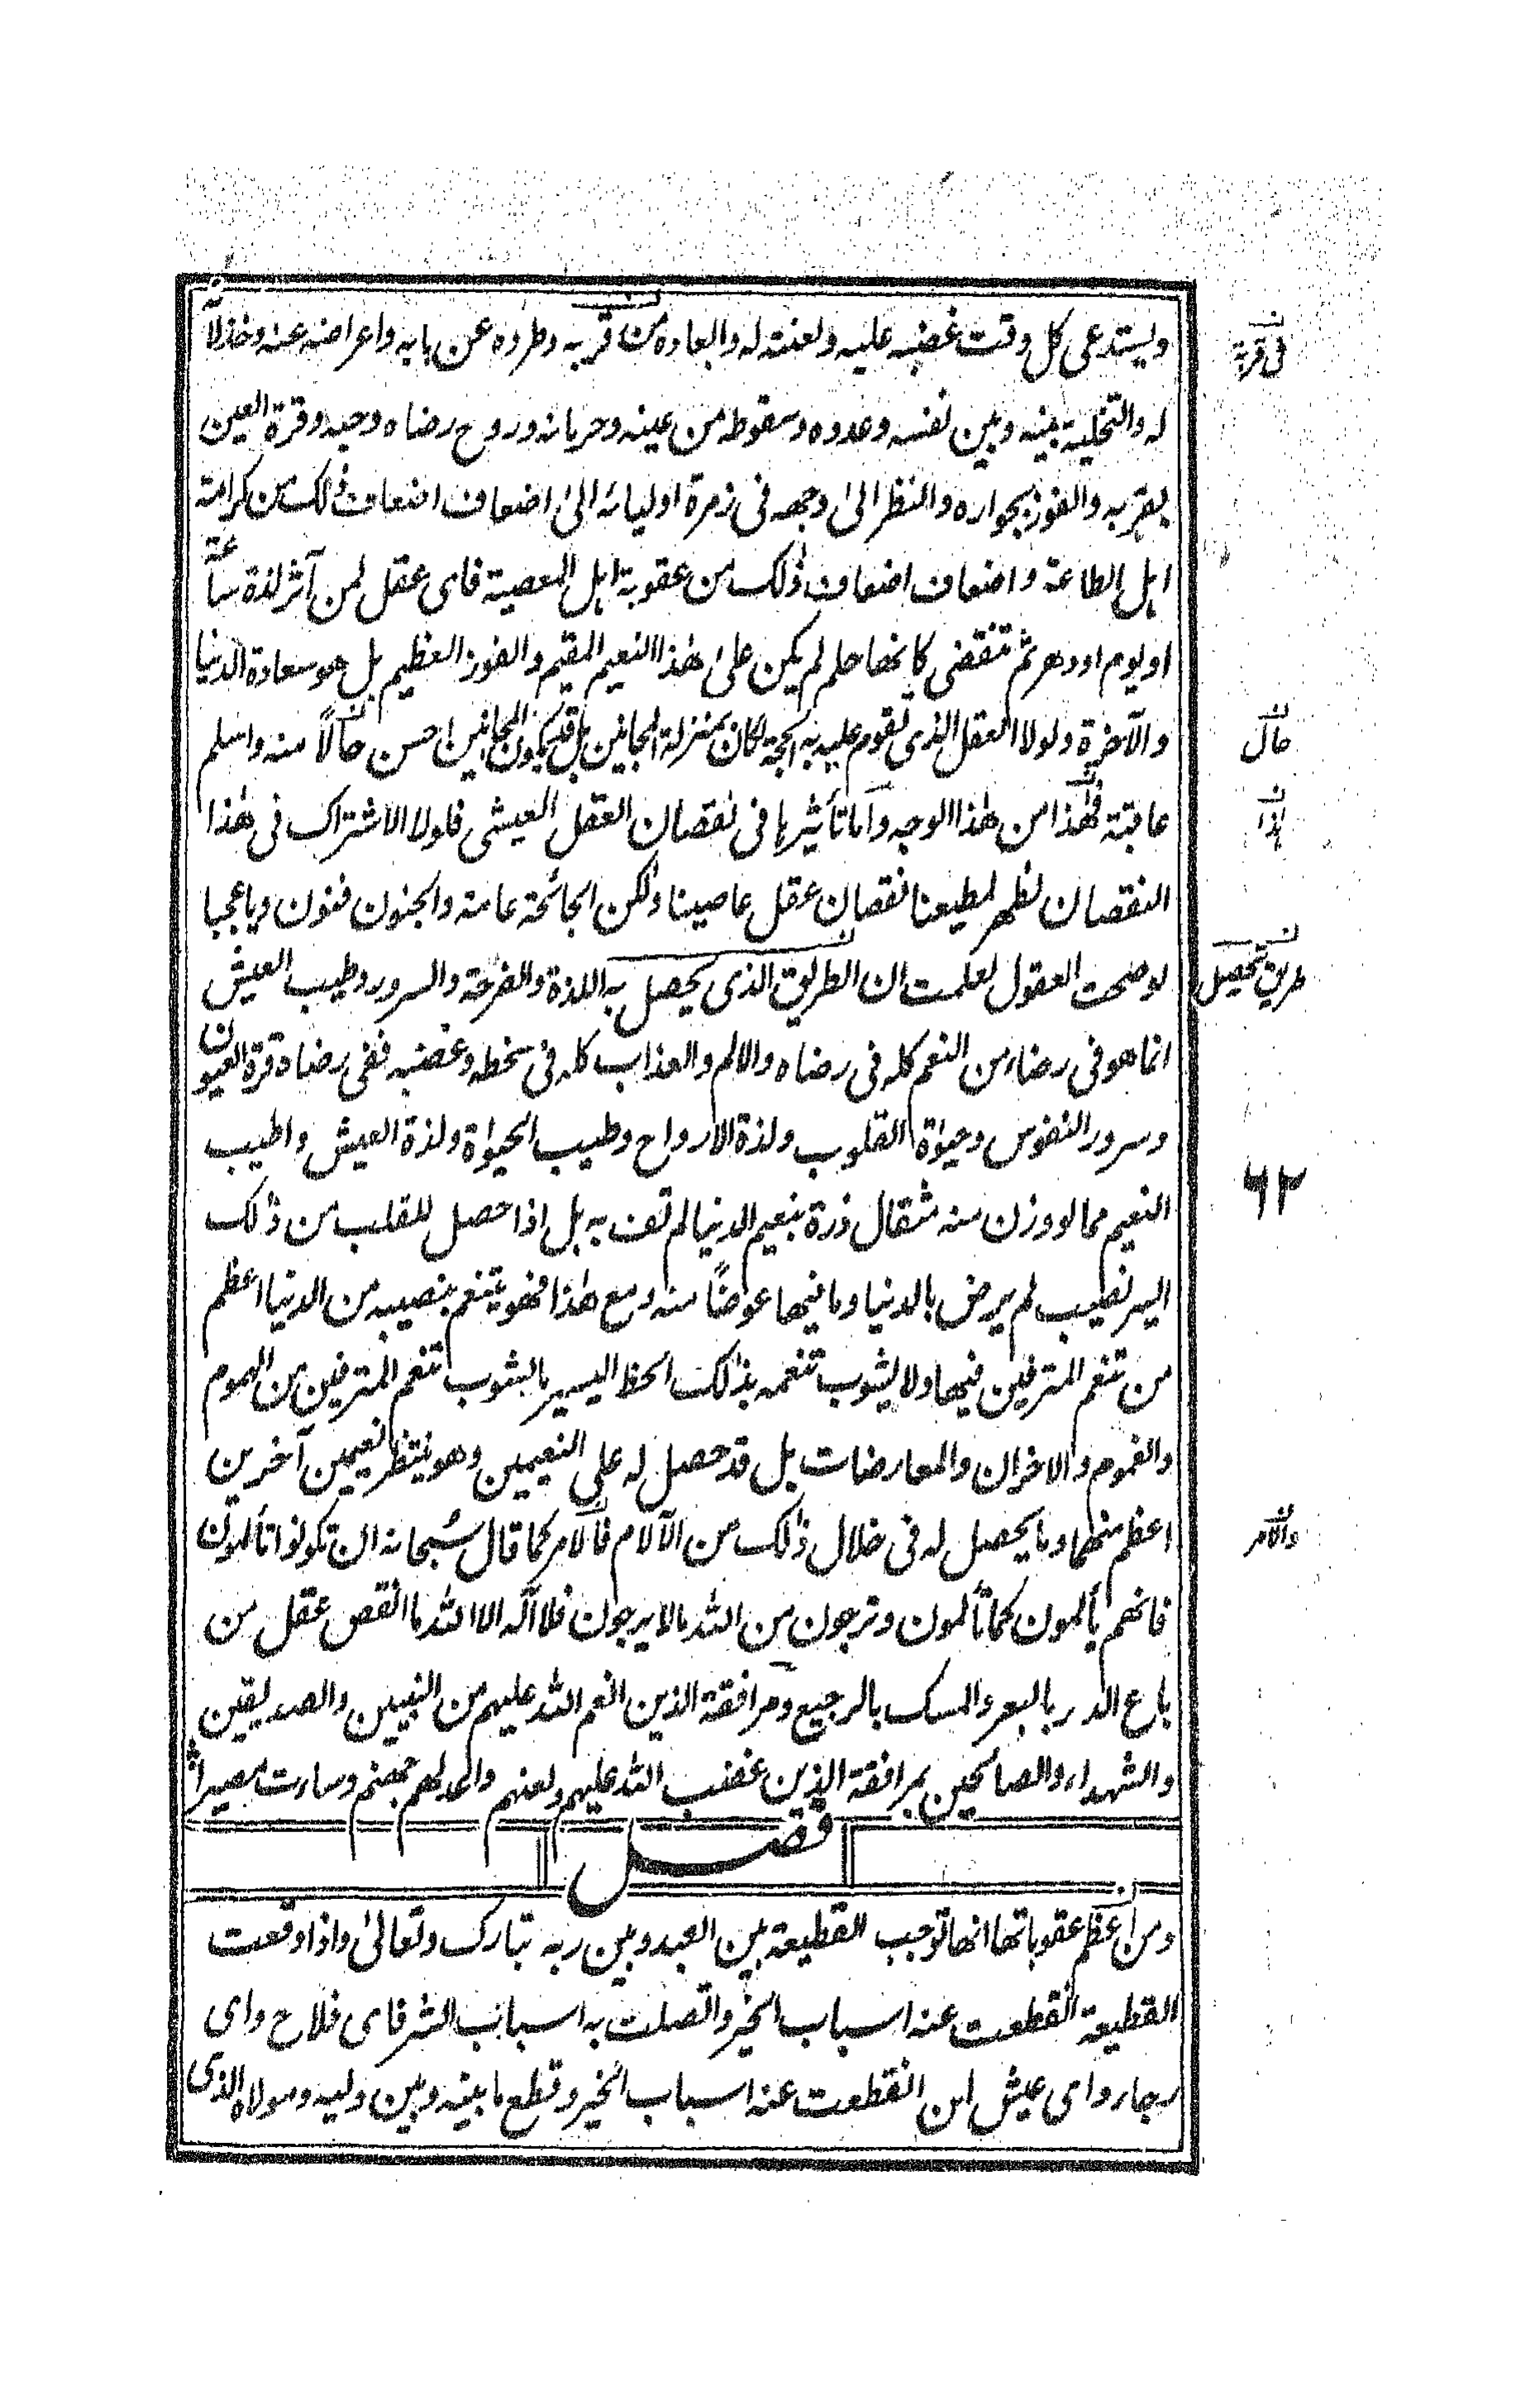 ويستدعى كل وقت غضبه عليه ولعنته له وابعاده من قربه وطرده عن بابه واعراضه عنه وخذلانه
له والتخلية بينه وبين نفسه وعدوه وسقوطه من عينه وحرمانه وروح رضاه وحبه وقرة العين
بقربه والفوز بجواره والنظر الى وجهه فى زمرة اوليائه الى اضعاف اضعاف ذلك من كرامة
اهل الطاعة واضعاف اضعاف ذلك من عقوبة اهل المعصية فاى عقل لمن آثر لذة ساعة
او يوم او دهر ثم تنقضى كانها حلم لم يكن على هذا النعيم المقيم والفوز العظيم بل هو سعادة الدنيا
والآخرة ولولا العقل الذى تقوم عليه به الحجة لكان بمنزلة المجانين بل قد يكون المجانين احسن حالاً منه واسلم
عاقبة فهذا من هذا الوجه وأما تأثيرها فى نقصان العقل العيشى فلولا الاشتراك فى هذا
النقصان لظهر لمطيعنا نقصان عقل عاصينا ولكن الجائحة عامة والجنون فنون ويا عجبا
لو صحت العقول لعلمت ان الطريق الذى يحصل به اللذة والفرحة والسرور وطيب العيش
انما هو فى رضاء من النعم كله فى رضاه والالم والعذاب كله فى سخطه وغضبه ففى رضاه قرة العيون
وسرور النفوس وحيوة القلوب ولذة الارواح وطيب الحيوة ولذة العيش واطيب
النعيم مما لو وزن منه مثقال ذرة بنعيم الدنيا لم تف به بل اذا حصل للقلب من ذلك
اليسر نصيب لم يرض بالدنيا وما فيها عوضًا منه ومع هذا فهو يتنعم بنصيبه من الدنيا اعظم
من تنعم المترفين فيها ولا يشوب تنعمه بذلك الحظ اليسير ما يشوب تنعم المترفين من الهموم
والغموم والاحزان والمعارضات بل قد حصل له على النعيمين وهو ينتظر نعيمين آخرين
اعظم منهما وما يحصل له فى خلال ذلك من الآلام فالامر كما قال سُبحانه ان تكونوا تألمون
فانهم يألمون كما تألمون وترجون من الله ما لا يرجون فلا اله الا الله ما انقص عقل من
باع الدر بالبعر والمسك بالرجيع ومرافقة الذين انعم الله عليهم من النبيين والصديقين
والشهداء والصالحين بمرافقة الذين غضب الله عليهم ولعنهم واعد لهم جهنم وساءت مصيراً
فصل
ومن اعظم عقوباتها انها توجب القطيعة بين العبد وبين ربه تبارك وتعالى واذا وقعت
القطيعة انقطعت عنه اسباب الخير واتصلت به اسباب الشر فاى فلاح واى
رجاء واى عيش لمن انقطعت عنه اسباب الخير وقطع ما بينه وبين وليه ومولاه الذى
فى قربة
حال
هذا
طريق تحصيل
٦٢
والامر